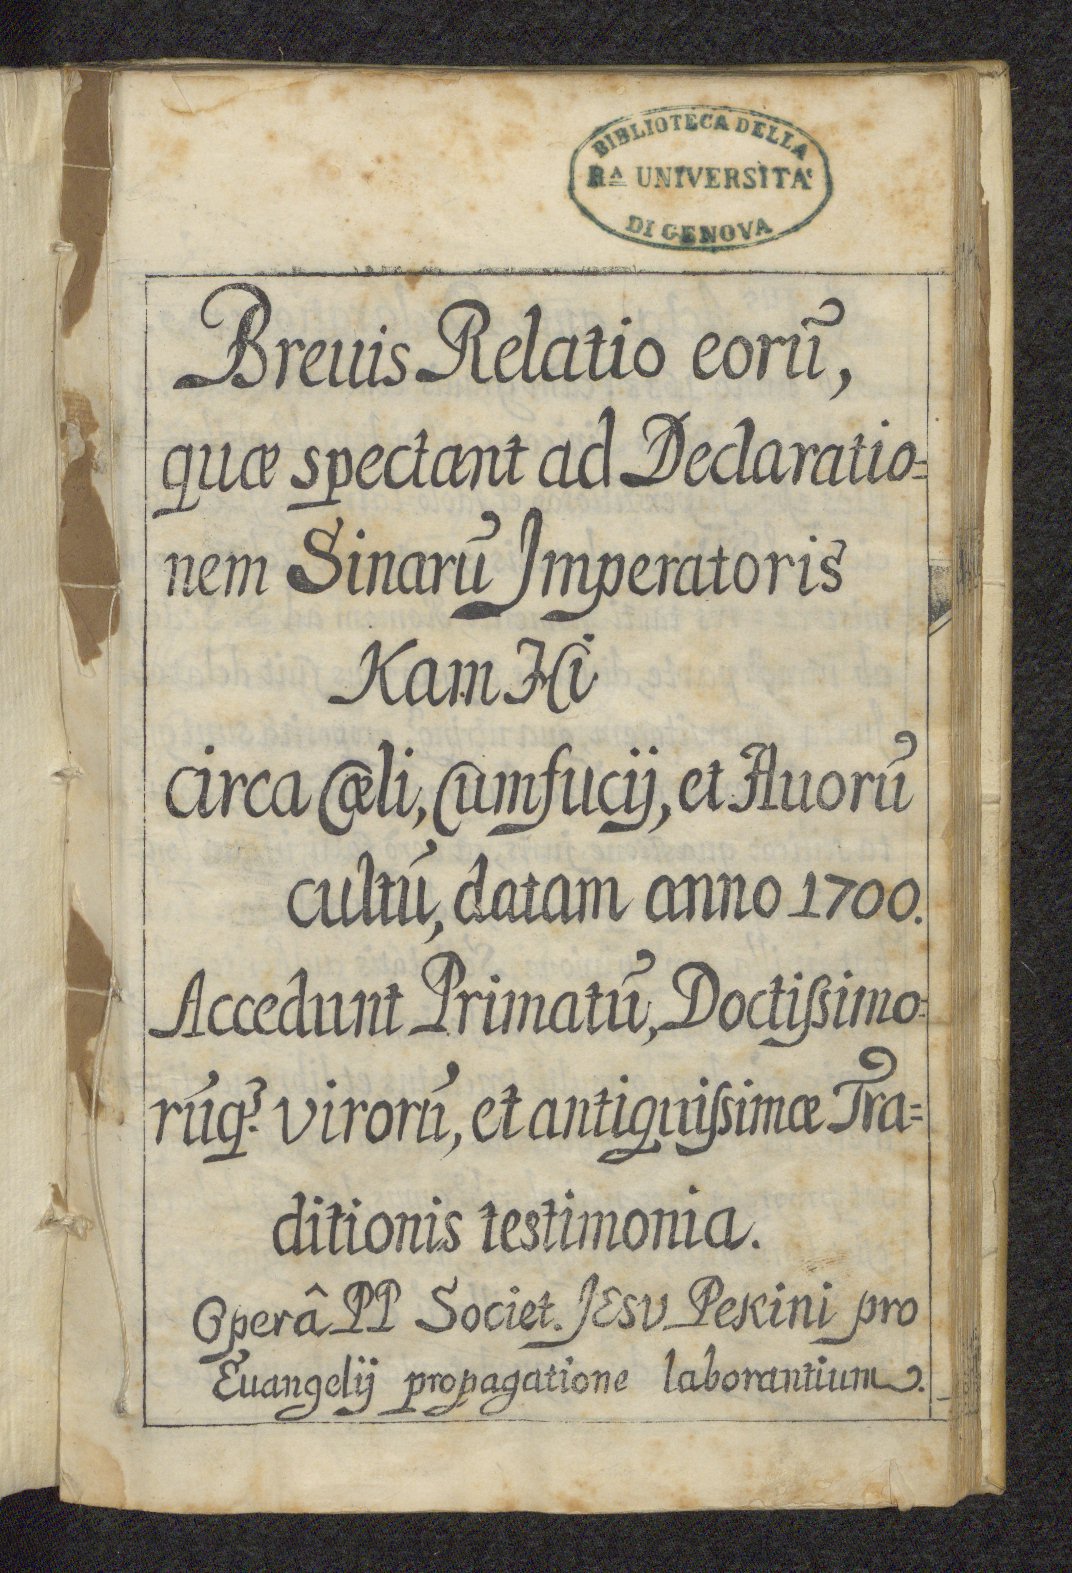 BIBLIOTECA DELLA
Rᴬ UNIVERSITA'
DI GENOVA
Breuis Relatio eorū,
quæ spectant ad Declaratio=
nem Sinarū Imperatoris
Kam Hi
circa Cœli, Cumfucij, et Auorū
cultū, datam anno 1700.
Accedunt Primatū, Doctißimo=
rūq3. virorū, et antiquißimæ Tra=
ditionis testimonia.
Operâ PP Societ. JESV Pekini pro
Euangelij propagatione laborantium.